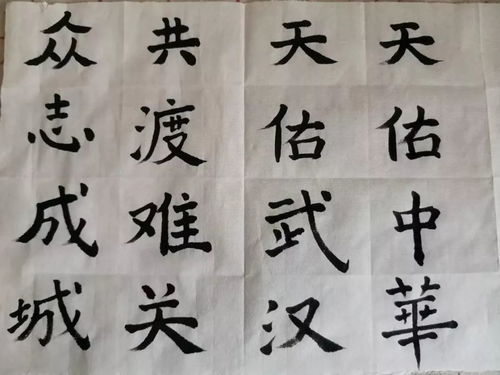 天佑中華
天佑武汉
共渡难关
众志成城